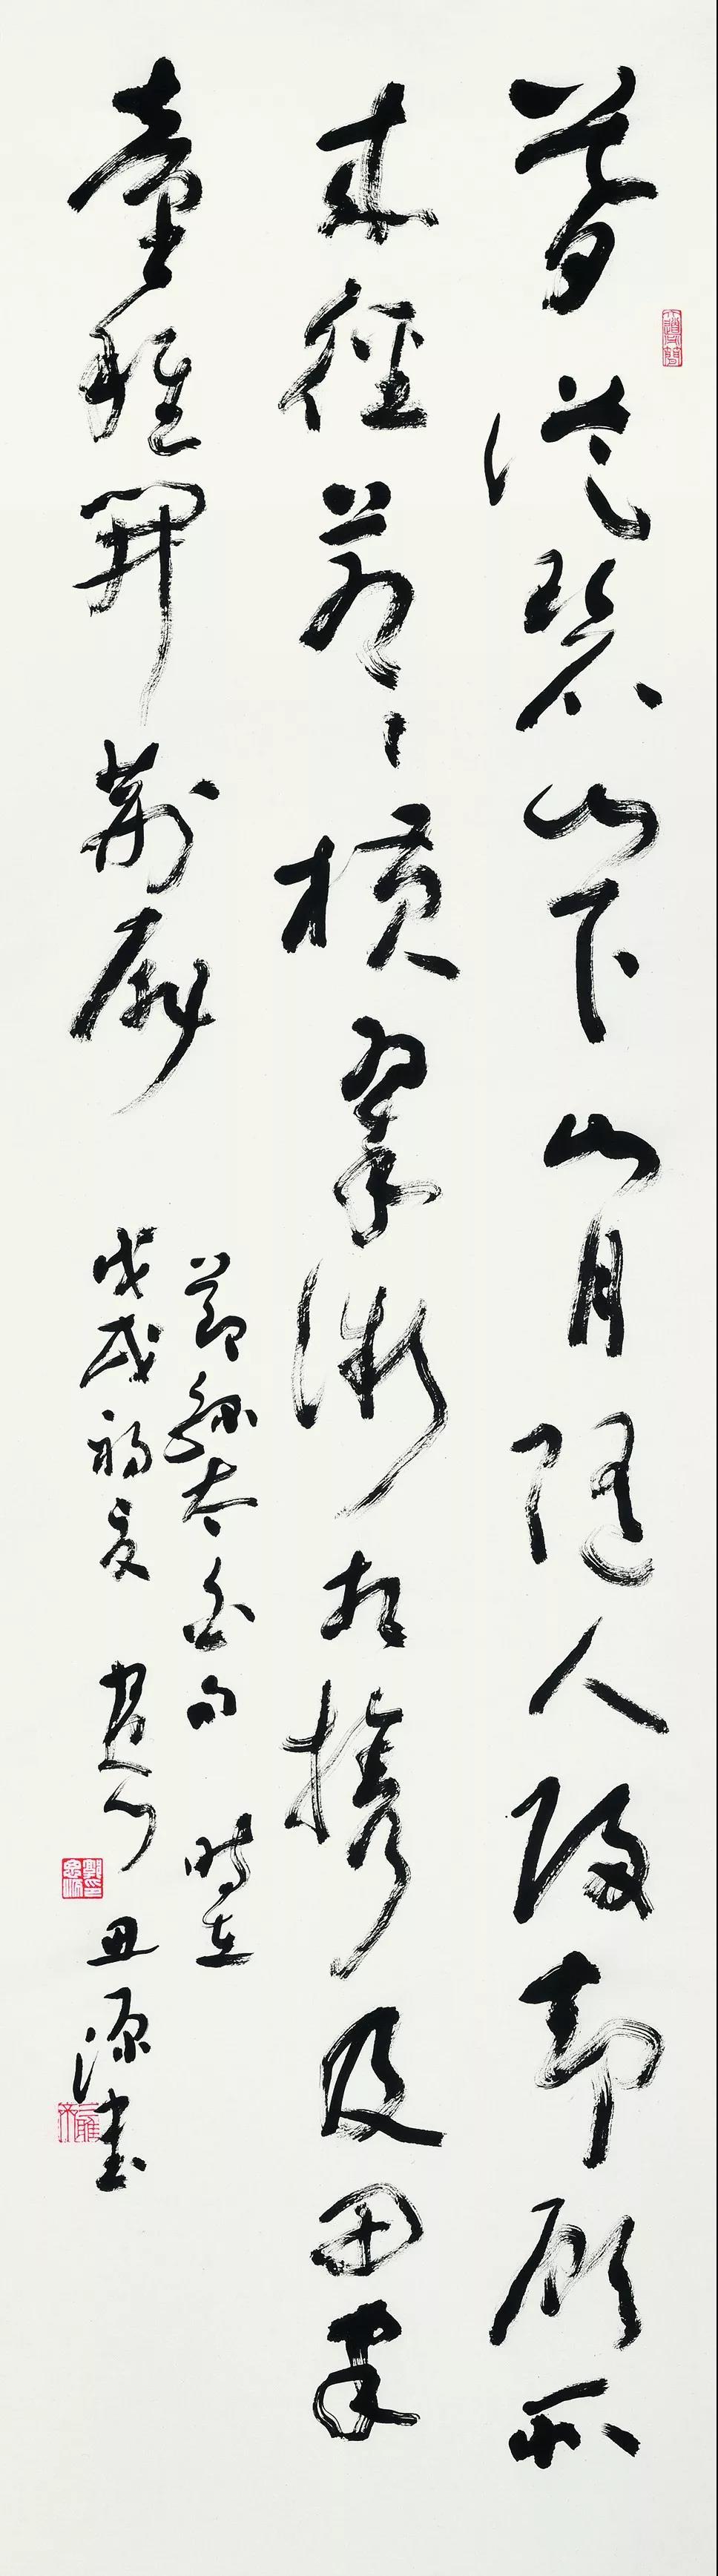 暮從碧山下山月隨人歸却顧所
来徑蒼〻橫翠微相攜及田家
童稚開荊扉
節錄太白句 時在
戊戌初夏 丑源書